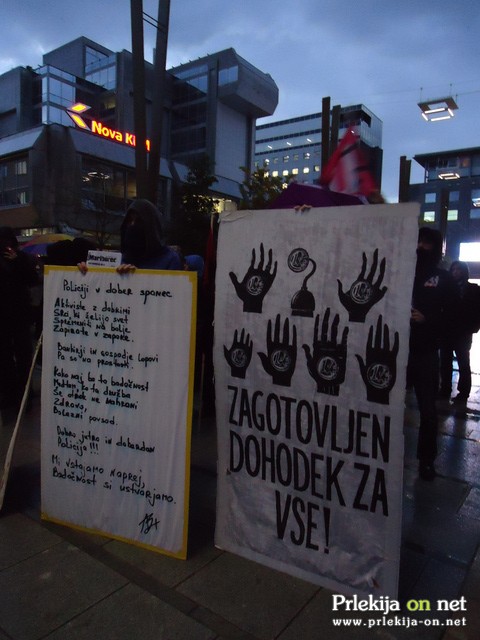 Nova K
Policiji v dober spanec
Aktiviste z dobrimi
srci, ki želijo svet
spremeniti na bolje
Zapirate v zapore.
Bankirji in gospodje lopovi
Pa so na prostosti.
Kako naj bo ta bodočnost
družba
Zdravo,
povsod.
Dobro jutro in dober dan
Policija!!!
Mi vstajamo naprej,
Bodočnost si ustvarjamo.
ZAGOTOVLJEN
DOHODEK ZA
VSE!
Prlekija on net
www.prlekija-on.net